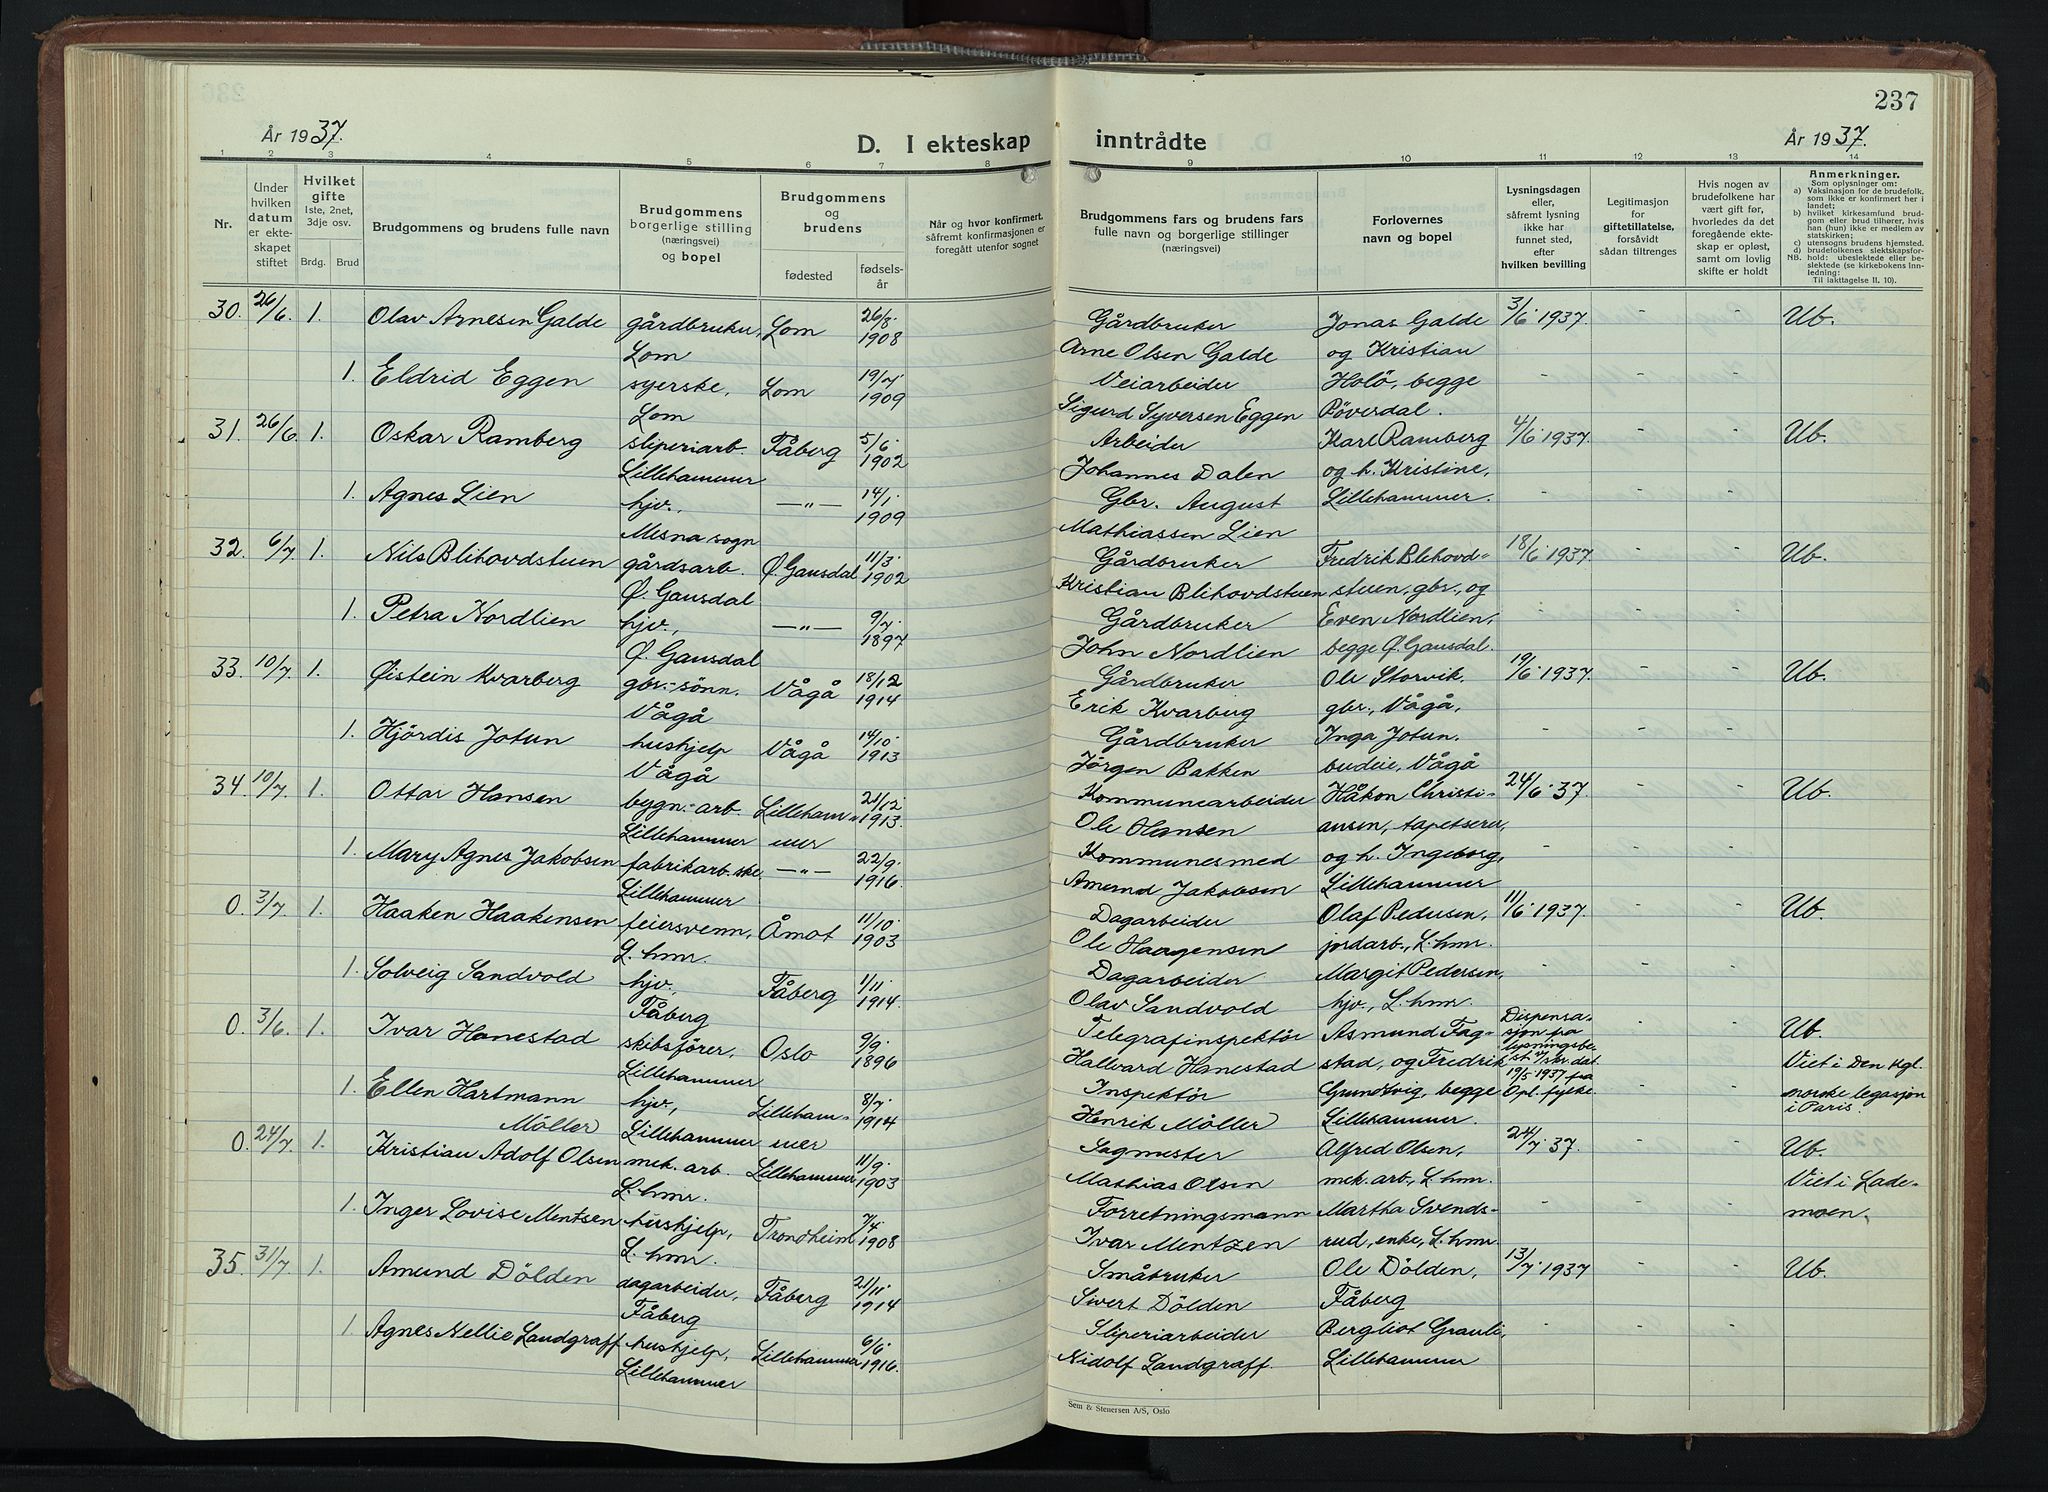 237
År 1937.
D. I ekteskap inntrådte
År 1937.
1 2 3 4 5 6 7 8 9 10 11 12 13 14
Nr.
Under hvilken datum er ekteskapet stiftet
Hvilket gifte
1ste, 2net, 3dje osv.
Brdg. Brud
Brudgommens og brudens fulle navn
Brudgommens borgerlige stilling (næringsvei) og bopel
Brudgommens og brudens
fødested
fødselsår
Når og hvor konfirmert, såfremt konfirmasjonen er foregått utenfor sognet
Brudgommens fars og brudens fars fulle navn og borgerlige stillinger (næringsvei)
Forlovernes navn og bopel
Lysningsdagen eller, såfremt lysning ikke har funnet sted, efter hvilken bevilling
Legitimasjon for giftetillatelse, forsåvidt sådan tiltrenges
Hvis nogen av brudefolkene har vært gift før, hvorledes da det foregående ekteskap er opløst, samt om lovlig skifte er holdt
Anmerkninger.
Som oplysninger om:
a) Vaksinasjon for de brudefolk, som ikke er konfirmert her i landet;
b) hvilket kirkesamfund brudgom eller brud tilhører, hvis han (hun) ikke er medlem av statskirken;
c) utensogns brudens hjemsted.
d) brudefolkenes slektskapsforhold: ubeslektede eller beslektede (se kirkebokens innledning:
NB. Til iakttagelse II. 10).
30. 26/6. 1. Olav Arnesen Galde gårdbruker, Lom Lom 26/8. 1908 Gårdbruker Arne Olsen Galde Jonas Galde og Kristian Holö, begge Böverdal. 3/6 1937. - - Ub.
1. Eldrid Eggen syerske, Lom Lom 19/7. 1909 Veiarbeider Sigurd Syversen Eggen - - -
31. 26/6. 1. Oskar Ramberg sliperiarb. Lillehammer Fåberg 5/6. 1902 Arbeider Johannes Dalen Karl Ramberg og h. Kristine, Lillehammer. 4/6 1937. - - Ub.
1. Agnes Lien hjv., Mesna sogn —"— 14/1. 1909 Gbr. August Mathiassen Lien - - -
32. 6/7. 1. Nils Blihovdstuen gårdsarb. Ø. Gausdal Ø. Gausdal 11/3. 1902 Gårdbruker Kristian Blihovdstuen Fredrik Blihovdstuen, gbr., og Even Nordlien, begge Ø. Gausdal. 18/6 1937. - - Ub.
1. Petra Nordlien hjv., Ø. Gausdal —"— 9/7. 1897 Gårdbruker John Nordlien - - -
33. 10/7. 1. Øistein Kvarberg gbr.-sönn. Vågå Vågå 18/12 1914 Gårdbruker Erik Kvarberg Ole Storvik, gbr., Vågå, 19/6 1937. - - Ub.
1. Hjördis Jotun hushjelp Vågå Vågå 14/10. 1913 Gårdbruker Jörgen Bakken Inga Jotun, budeie, Vågå - - -
34. 10/7. 1. Ottar Hansen bygn.-arb. Lillehammer Lillehammer 21/12. 1913. Kommunearbeider Ole Hansen Håkon Christiansen, tapetserer, og h. Ingeborg, Lillehammer 24/6. 37. - - Ub.
1. Mary Agnes Jakobsen fabrikarb.ske. Lillehammer —"— 22/9. 1916. Kommunesmed Amund Jakobsen - - -
0. 3/7. 1. Haaken Haakensen feiersvenn, L.hmr. Åmot 11/10. 1903 Dagarbeider Ole Haagensen Olaf Pedersen, jordarb., L.hmr. 11/6 1937. - - Ub.
1. Solveig Sandvold hjv., Fåberg Fåberg 1/11. 1914. Dagarbeider Olav Sandvold Margit Pedersen, hjv., L.hmr. - - -
0. 3/6. 1. Ivar Hanestad skibsförer, Lillehammer Oslo 9/9. 1896 Telegrafinspektör Hallvard Hanestad Asmund Fagstad, og Fredrik Grundtvig, begge Lillehammer. Dispensasjon fra lysningsbe- skr. dat. 19/5 1937 fra Opl. fylke. - - Ub. Viet i Den kgl. norske legasjon i Paris.
1. Ellen Hartmann Möller hjv., Lillehammer Lillehammer 8/7. 1914 Inspektör Henrik Möller
0. 24/7. 1. Kristian Adolf Olsen mek. arb. L.hmr. Lillehammer 11/9. 1903 Sagmester Mathias Olsen Alfred Olsen, mek. arb., L.hmr. 24/7. 37. - - Ub. Viet i Lademoen.
1. Inger Lovise Mentsen hushjelp, L.hmr. Trondheim 7/4. 1908 Forretningsmann Ivar Mentzen Martha Svendsrud, enke, L.hmr. - - -
35. 31/7. 1. Amund Dölden dagarbeider, Fåberg Fåberg 21/11. 1914 Småbruker Sivert Dölden Ole Dölden, Fåberg 13/7. 1937 - - Ub.
1. Agnes Nellie Landgraff hushjelp, Lillehammer Lillehammer 6/6. 1916. Sliperiarbeider Nidolf Landgraff. Bergliot Grauli, Lillehammer - - -
Sem & Stenersen A/S, Oslo